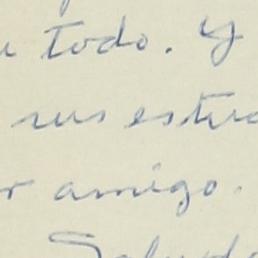 todo. Y
sus estu
r amigo.
Salud